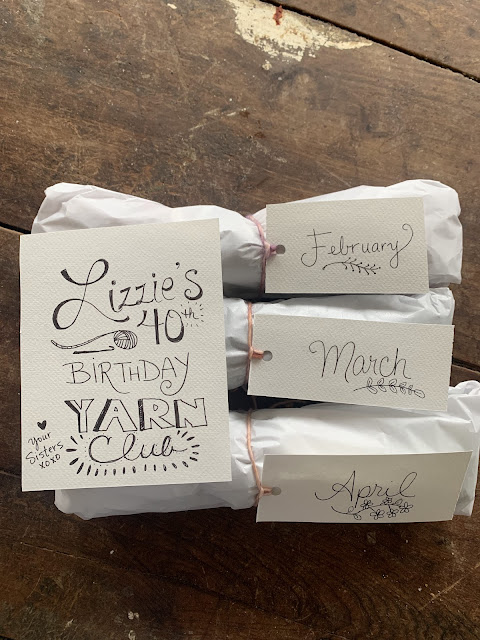 Lizzie's
40th
BIRTHDAY
YARN
Club
Your
Sisters
xoxo
February
March
April